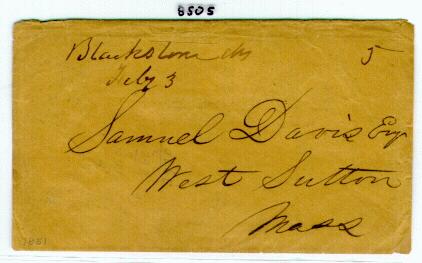 8505
Blackstone Ms 5
Feby 3
Samuel Davis Esq
West Sutton
Mass
1851